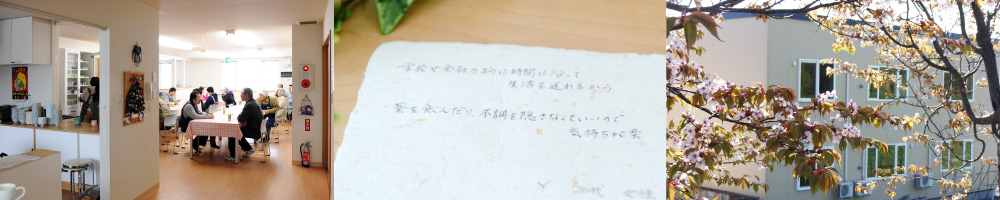 学校や会社の様に時間に沿って
生活を送れるから
薬を飲んだり、不調を隠さなくていいので
気持ちが楽
Y 30代 女性